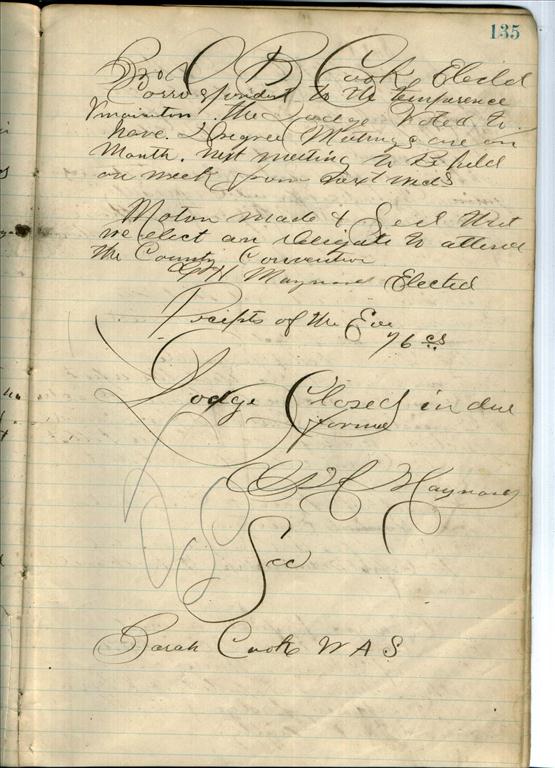 135
Bro O B Cook Elected
Correspondent to the temperence
the Lodge Voted to
have 2 Degree Meetings one
Month. next meeting to be held
on week from next Wed's
Motion made & Secd that
we elect an deligate to attend
the County Convention
H Maynard Elected
Receipts of the Eve
76 cs
Lodge Closed in due
forme
H Maynard
Sec
Sarah Cook W A S